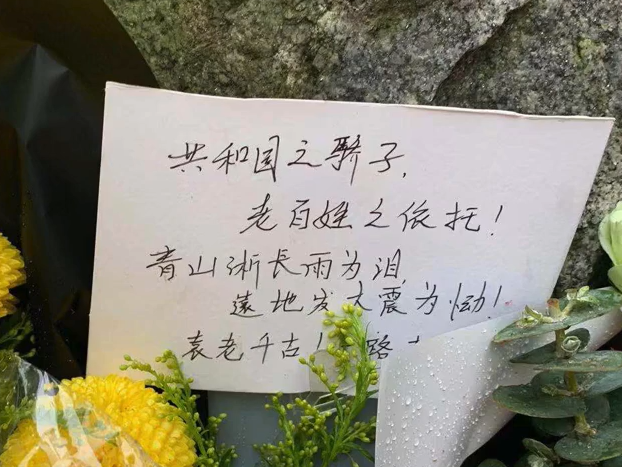 共和国之骄子,
老百姓之依托!
青山淅长雨为泪,
遠地发大震为恸!
袁老千古! 路